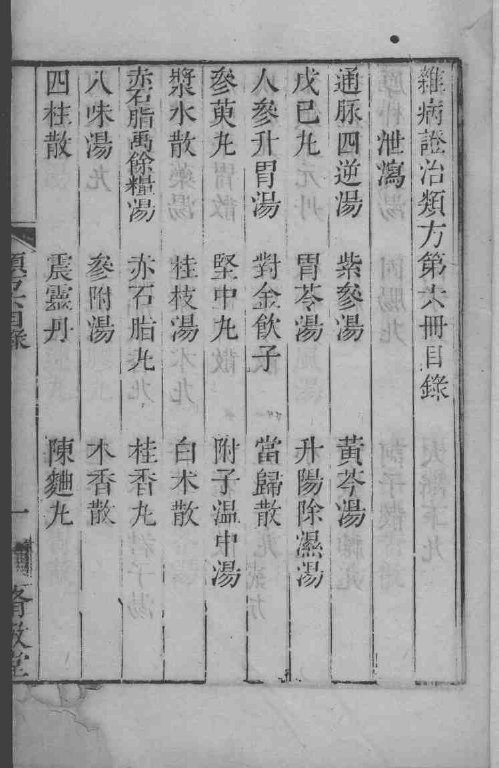 雜病證治類方第六冊目錄
泄瀉
通脉四逆湯 紫參湯 黃芩湯
戊巳丸 胃苓湯 升陽除濕湯
人參升胃湯 對金飲子 當歸散
參萸丸 堅中丸 附子温中湯
漿水散 桂枝湯 白术散
赤石脂禹餘糧湯 赤石脂丸 桂香丸
八味湯 參附湯 木香散
四柱散 震靈丹 陳麯丸
類方目錄 一